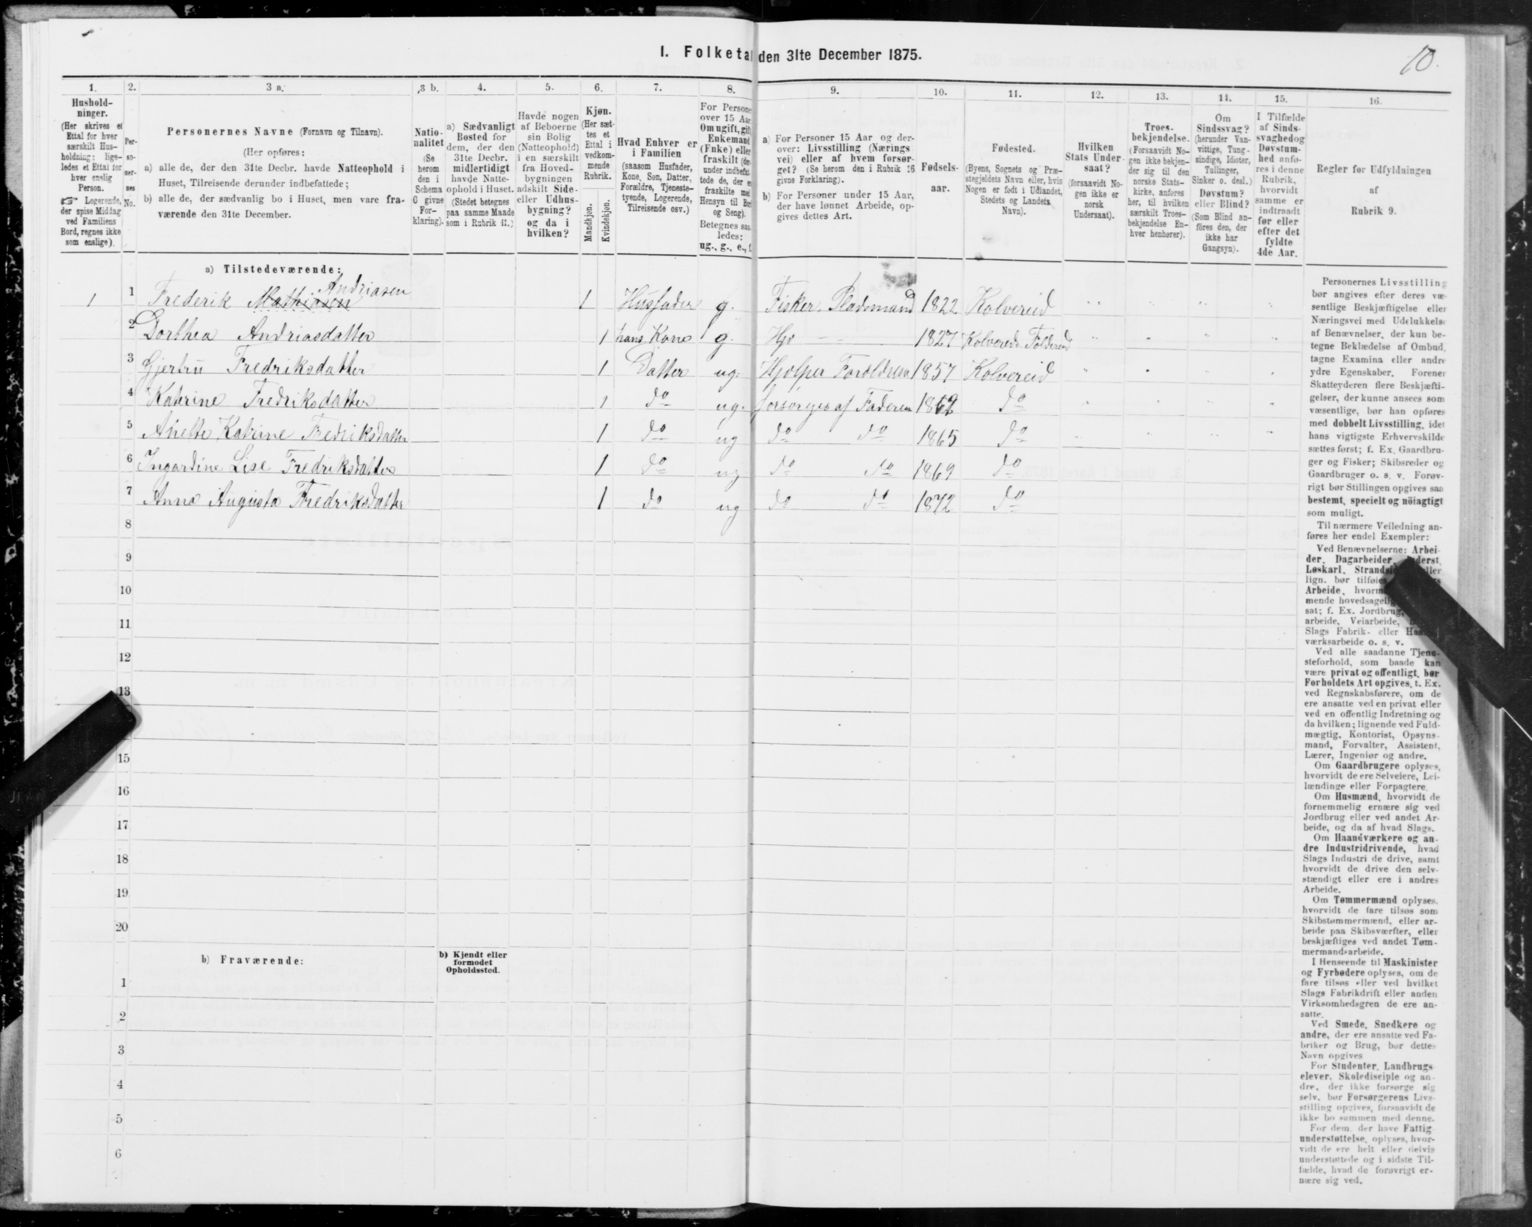 I. Folketa den 31te December 1875.
10.
1.
Hushold-
ninger.
(Her skrives et
Ettal for hver
særskilt Hus-
holdning; lige-
ledes et Ettal for
hver enslig
Person.
☞ Logerende,
der spise Middag
ved Familiens
Bord, regnes ikke
som enslige).
2.
Per-
so-
ner-
nes
No.
3 a.
Personernes Navne (Fornavn og Tilnavn).
(Her opføres:
a) alle de, der den 31te Decbr. havde Natteophold i
Huset, Tilreisende derunder indbefattede;
b) alle de, der sædvanlig bo i Huset, men vare fra-
værende den 31te December.
3 b.
Natio-
nalitet
(Se
herom
den i
Schema
C givne
For-
klaring).
4.
a) Sædvanligt
Bosted for
dem, der den
31te Decbr.
midlertidigt
havde Natte-
ophold i Huset.
(Stedet betegnes
paa samme Maade
som i Rubrik 11.)
5.
Havde nogen
af Beboerne
sin Bolig
(Natteophold)
i en særskilt
fra Hoved-
bygningen
adskilt Side-
eller Udhus-
bygning?
og da i
hvilken?
6.
Kjøn.
(Her sæt-
tes et
Ettal i
vedkom-
mende
Rubrik.
Mandkjøn.
Kvindekjøn.
7.
Hvad Enhver er
i Familien
(saasom Husfader,
Kone, Søn, Datter,
Forældre, Tjeneste-
tyende, Logerende,
Tilreisende osv.)
8.
For Persone
over 15 Aar
Om ugift, gift
Enkemand
(Enke) eller
fraskilt
Betegnes saa
ledes:
ug., g., e.,
9.
a) For Personer 15 Aar og der-
over: Livsstilling (Nærings
vei) eller af hvem forsør-
get? (Se herom den i Rubrik 16
givne Forklaring).
b) For Personer under 15 Aar,
der have lønnet Arbeide, op-
gives dettes Art.
10.
Fødsels-
aar.
11.
Fødested.
(Byens, Sognets og Præ-
stegjeldets Navn eller, hvis
Nogen er født i Udlandet,
Stedets og Landets
Navn).
12.
Hvilken
Stats Under-
saat?
(forsaavidt No-
gen ikke er
norsk
Undersaat).
13.
Troes-
bekjendelse.
(Forsaavidt No-
gen ikke bekjen-
der sig til den
norske Stats-
kirke, anføres
her, til hvilken
særskilt Troes-
bekjendelse En-
hver henhører).
14.
Om
Sindssvag?
(herunder Van-
vittige, Tung-
sindige, Idioter,
Tullinger,
Sinker o. desl.)
Døvstum?
eller Blind?
(Som Blind an-
føres den, der
ikke har
Gangsyn).
15.
I Tilfælde
af Sinds-
svaghed og
Døvstum-
hed anfø-
res i denne
Rubrik,
hvorvidt
samme er
indtraadt
før eller
efter det
fyldte
4de Aar.
16.
Regler for Udfyldningen
af
Rubrik 9.
a) Tilstedeværende:
Andriasen
1 1 Frederik Mathiasen 1 Husfader g. Fisker, Pladsmand 1822 Kolvereid " " " "
2 Dorthea Andriasdatter 1 hans Kone g. Hjv - - 1827 Kolvereid Foldereid " " " "
3 Gjertru Fredriksdatter 1 Datter ug. Hjelper Forældrene 1857 Kolvereid " " " "
4 Katrine Fredriksdatter 1 do ug. forsørges af Faderen 1862 do " " " "
5 Anette Katrine Fredriksdatter 1 do ug do do 1865 do
6 Ingardine Lise Fredriksdatter 1 do ug do do 1869 do
7 Anna Augusta Fredriksdatter 1 do ug do do 1872 do
8
9
10
11
12
13
15
16
17
18
19
20
b) Fraværende:
b) Kjendt eller
formodet
Opholdssted.
1
2
3
4
5
6
Personernes Livsstilling
bør angives efter deres væ-
sentlige Beskjæftigelse eller
Næringsvei med Udelukkelse
af Benævnelser, der kun be-
tegne Beklædelse af Ombud,
tagne Examina eller andre
ydre Egenskaber. Forener
Skatteyderen flere Beskjæfti-
gelser, der kunne ansees som
væsentlige, bør han opføres
med dobbelt Livsstilling, idet
hans vigtigste Erhvervskilde
sættes først; f. Ex. Gaardbru-
ger og Fisker; Skibsreder og
Gaardbruger o. s. v. Forøv-
rigt bør Stillingen opgives saa
bestemt, specielt og nöiagtigt
som muligt.
Til nærmere Veiledning an-
føres her endel Exempler:
Ved Benævnelserne: Arbei-
der, Dagarbeider, derst,
Løskarl, Strands eller
lign. bør tilføies
Arbeide, hvorm
mende hovedsagelig
sat; f. Ex. Jordbrug,
arbeide, Veiarbeide,
Slags Fabrik- eller Ha
værksarbeide o. s. v.
Ved alle saadanne Tjene-
steforhold, som baade kan
være privat og offentligt, bør
Forholdets Art opgives, t. Ex.
ved Regnskabsførere, om de
ere ansatte ved en privat eller
ved en offentlig Indretning og
da hvilken; lignende ved Fuld-
mægtig, Kontorist, Opsyns-
mand, Forvalter, Assistent,
Lærer, Ingeniør og andre.
Om Gaardbrugere oplyses,
hvorvidt de ere Selveiere, Lei-
lændinge eller Forpagtere.
Om Husmænd, hvorvidt de
fornemmelig ernære sig ved
Jordbrug eller ved andet Ar-
beide, og da af hvad Slags.
Om Haandværkere og an-
dre Industridrivende, hvad
Slags Industri de drive, samt
hvorvidt de drive den selv-
stændigt eller ere i andres
Arbeide.
Om Tømmermænd oplyses,
hvorvidt de fare tilsøs som
Skibstømmermænd, eller ar-
beide paa Skibsværfter, eller
beskjæftiges ved andet Tøm-
mermandsarbeide.
I Henseende til Maskinister
og Fyrbødere oplyses, om de
fare tilsøs eller ved hvilket
Slags Fabrikdrift eller anden
Virksomhedsgren de ere an-
satte.
Ved Smede, Snedkere og
andre, der ere ansatte ved Fa-
briker og Brug, bør dettes
Navn opgives
For Studenter, Landbrugs
elever, Skoledisciple og an-
dre, der ikke forsørge sig
selv, bør Forsørgerens Livs-
stilling opgives, forsaavidt de
ikke bo sammen med denne.
For dem, der have Fattig
understøttelse, oplyses, hvor-
vidt de ere helt eller delvis
understøttede og i sidste Til-
fælde, hvad de forøvrigt er-
nære sig ved.